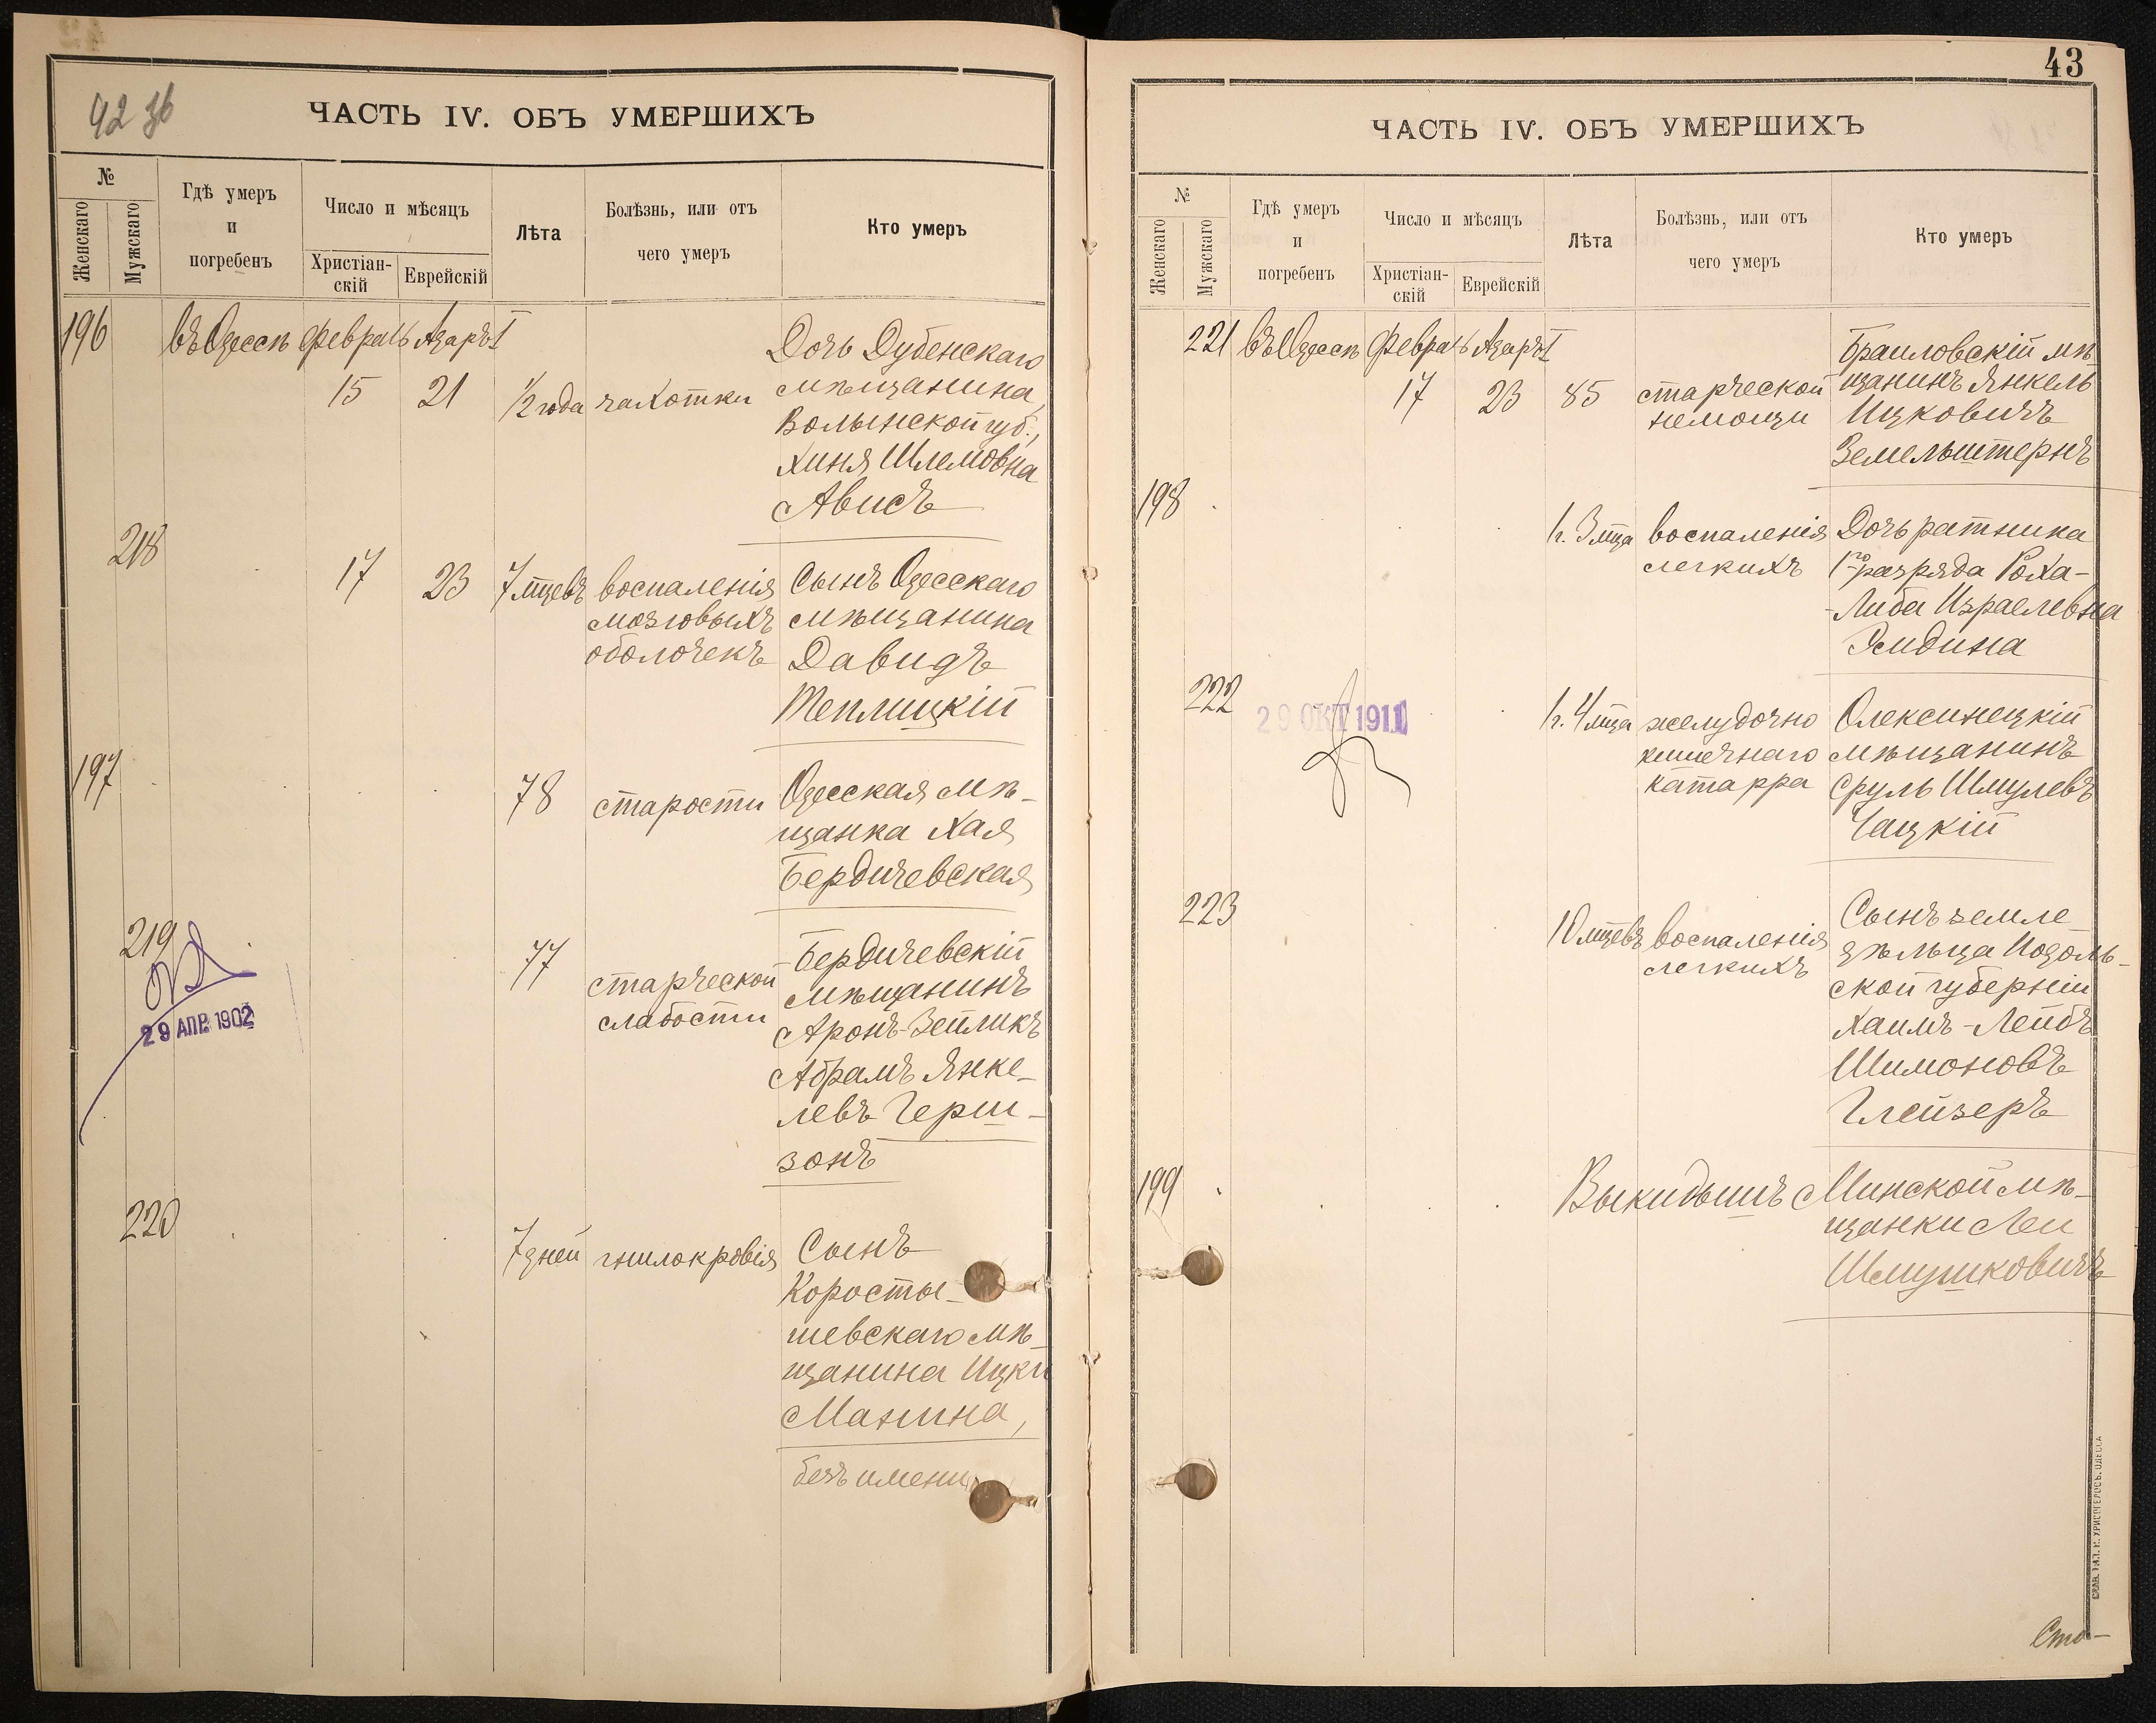 42 зв
ЧАСТЬ IV. ОБЪ УМЕРШИХЪ
№
Женскаго
Мужскаго
Гдѣ умеръ
и
погребенъ
Число и мѣсяцъ
Христіан-
скій
Еврейскій
Лѣта
Болѣзнь, или отъ
чего умеръ
Кто умеръ
196
въ Одессѣ
Февраль
Адаръ I
15
21
1/2 года
чахотки
Дочь Дубенскаго
мѣщанина,
Волынской губ.,
Хиня Шлемовна
Ависъ
218
17
23
7 мцевъ
воспаленія
мозговыхъ
оболочекъ
Сынъ Одесскаго
мѣщанина
Давидъ
Теплицкій
197
78
старости
Одесская мѣ-
щанка Хая
Бердичевская
219
29 АПР. 1902
77
старческой
слабости
Бердичевскій
мѣщанинъ
Аронъ-Зейликъ
Абрамъ Янке-
левъ Герш-
зонъ
220
7 дней
гнилокровія
Сынъ
Коросты-
шевскаго мѣ-
щанина Ицки
Манина,
безъ имени
43
ЧАСТЬ IV. ОБЪ УМЕРШИХЪ
№
Женскаго
Мужскаго
Гдѣ умеръ
и
погребенъ
Число и мѣсяцъ
Христіан-
скій
Еврейскій
Лѣта
Болѣзнь, или отъ
чего умеръ
Кто умеръ
221
въ Одессѣ
Февраль
Адаръ I
17
23
85
старческой
немощи
Браиловскій мѣ
щанинъ Янкель
Ицковичъ
Земельштернъ
198
1 г. 3 мца
воспаленія
легкихъ
Дочь ратника
1го разряда Роха-
-Либа Израелевна
Эйдина
222
29 ОКТ 1911
1 г. 4 мца
желудочно
кишечнаго
катарра
Олексинецкій
мѣщанинъ
Сруль Шмулевъ
Чацкій
223
10 мцевъ
воспаленія
легкихъ
Сынъ земле
дѣльца Подоль-
ской губерніи
Хаимъ-Лейбъ
Шимоновъ
Глейзеръ
199
Выкидышъ
Минской мѣ-
щанки Леи
Шмушковичъ
Сто-